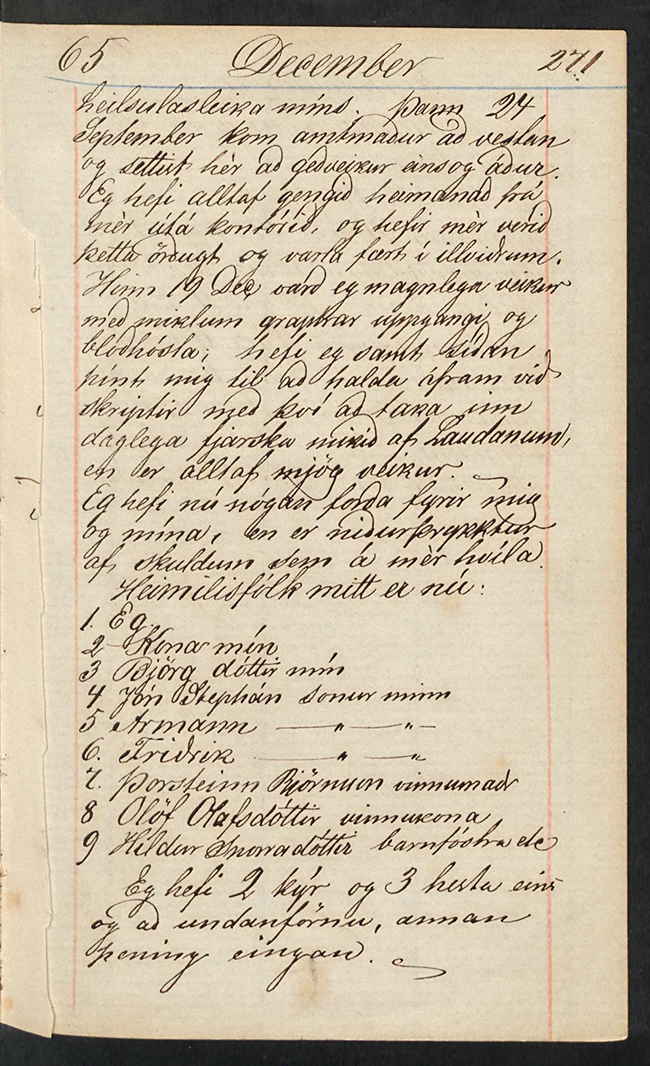 65 December 271
heilsulasleika míns. Þann 24
September kom amtmaður að vestan
og settist hér að geðveikur eins og áður.
Eg hefi alltaf gengið heimanað frá
mér útá kontórið, og hefir mér verið
þetta örðugt og varla fært í illviðrum.
Hinn 19 Dec varð eg magnlega veikur
með miklum graptrar uppgangi og
blóðhósta; hefi eg samt síðan
pínt mig til að halda áfram við
skriptir með því að taka inn
daglega fjarska mikið af Laudanum,
en er alltaf mjög veikur.
Eg hefi nú nógan forða fyrir mig
og mína, en er niðurþrykktur
af skuldum sem á mér hvíla.
Heimilisfólk mitt er nú:
1. Eg.
2 Kona mín
3 Björg dóttir mín
4 Jón Stephán sonur minn
5 Armann — „ — „ —
6. Friðrik — „ — „
7. Þorsteinn Björnsson vinnumaðr
8 Olöf Olafsdóttir vinnukona
9 Hildur Snorradóttir barnfóstra etc
Eg hefi 2 kýr og 3 hesta eins
og að undanförnu, annan
pening eingan.